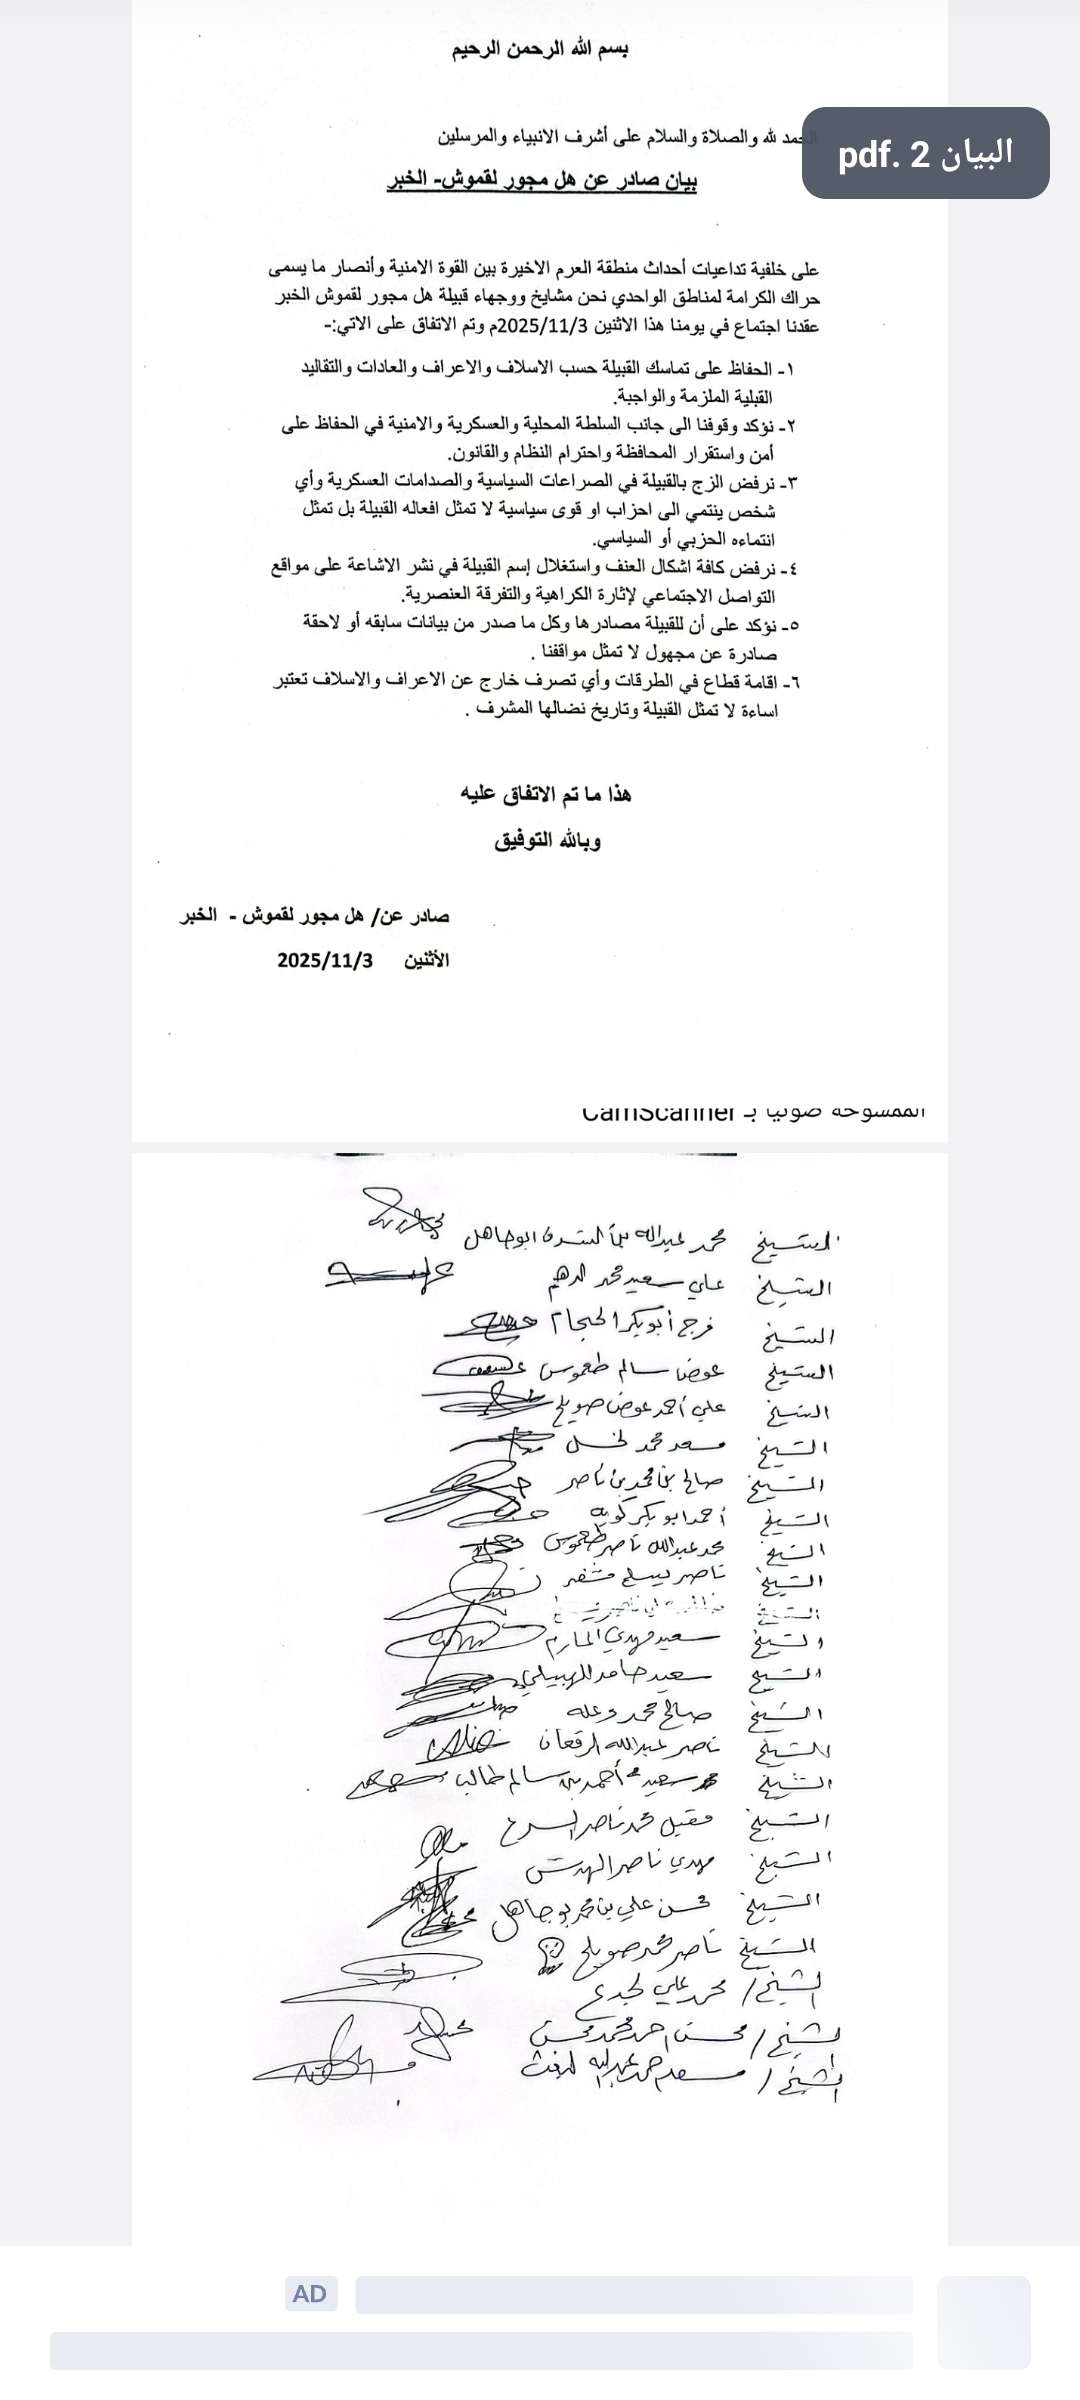 بسم الله الرحمن الرحيم
البيان 2 .pdf
الحمد لله والصلاة والسلام على أشرف الانبياء والمرسلين
بيان صادر عن هل مجور لقموش- الخبر
على خلفية تداعيات أحداث منطقة العرم الاخيرة بين القوة الامنية وأنصار ما يسمى
حراك الكرامة لمناطق الواحدي نحن مشايخ ووجهاء قبيلة هل مجور لقموش الخبر
عقدنا اجتماع في يومنا هذا الاثنين 2025/11/3م وتم الاتفاق على الاتي:-
١- الحفاظ على تماسك القبيلة حسب الاسلاف والاعراف والعادات والتقاليد
القبلية الملزمة والواجبة.
٢- نؤكد وقوفنا الى جانب السلطة المحلية والعسكرية والامنية في الحفاظ على
أمن واستقرار المحافظة واحترام النظام والقانون.
٣- نرفض الزج بالقبيلة في الصراعات السياسية والصدامات العسكرية وأي
شخص ينتمي الى احزاب او قوى سياسية لا تمثل افعاله القبيلة بل تمثل
انتماءه الحزبي أو السياسي.
٤- نرفض كافة اشكال العنف واستغلال إسم القبيلة في نشر الاشاعة على مواقع
التواصل الاجتماعي لإثارة الكراهية والتفرقة العنصرية.
٥- نؤكد على أن للقبيلة مصادرها وكل ما صدر من بيانات سابقه أو لاحقة
صادرة عن مجهول لا تمثل مواقفنا .
٦- اقامة قطاع في الطرقات وأي تصرف خارج عن الاعراف والاسلاف تعتبر
اساءة لا تمثل القبيلة وتاريخ نضالها المشرف .
هذا ما تم الاتفاق عليه
وبالله التوفيق
صادر عن/ هل مجور لقموش - الخبر
الأثنين 2025/11/3
الممسوحة ضوئيا بـ CamScanner
الشيخ محمد عبدالله ابوجاهل
الشيخ علي سعيد محمد الدهم
الشيخ فرج أبوبكر الحجام
الشيخ عوض سالم طعموس
الشيخ علي أحمد عوض صويلح
الشيخ مسعد محمد
الشيخ صالح بن محمد بن ناصر
الشيخ أحمد ابوبكر
الشيخ محمد عبدالله ناصر طعموس
الشيخ ناصر
الشيخ
الشيخ سعيد مهدي
الشيخ سعيد حامد
الشيخ صالح محمد
الشيخ ناصر عبدالله
الشيخ سعيد أحمد بن سالم طالب
الشيخ مقبل محمد ناصر
الشيخ مهدي ناصر
الشيخ محسن علي بن محمد بوجاهل
الشيخ ناصر محمد صويلح
الشيخ/ محمد علي
الشيخ/ محسن احمد محمد محسن
الشيخ/ مسعد احمد عبدالله
AD